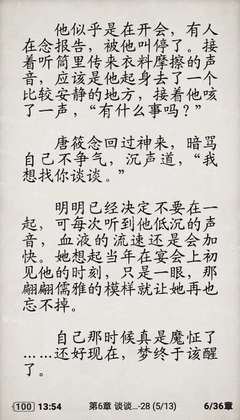 他似乎是在开会，有人
在念报告，被他叫停了。接
着听筒里传来衣料摩擦的声
音，应该是他起身去了一个
比较安静的地方，接着他咳
了一声，“有什么事吗？”
唐筱念回过神来，暗骂
自己不争气，沉声道，“我
想找你谈谈。”
明明已经决定不要在一
起，可每次听到他低沉的声
音，血液的流速还是会加
快。她想起当年在宴会上初
见他的时刻，只是一眼，那
翩翩儒雅的模样就让她再也
忘不掉。
自己那时候真是魔怔了
……还好现在，梦终于该醒
了。
100 13:54 第6章 谈谈...-28 (5/13) 6/36章